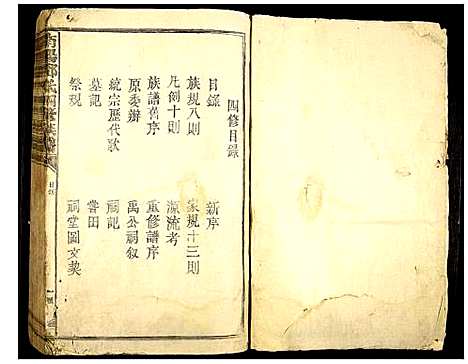 四修目錄
目錄 新序
族規八則 家規十三則
凡例十則 源流考
族譜舊序 重修譜序
原委辦 禹公祠叙
統宗歷代歌 祠記
墓記 嘗田
祭規 祠堂圖文契